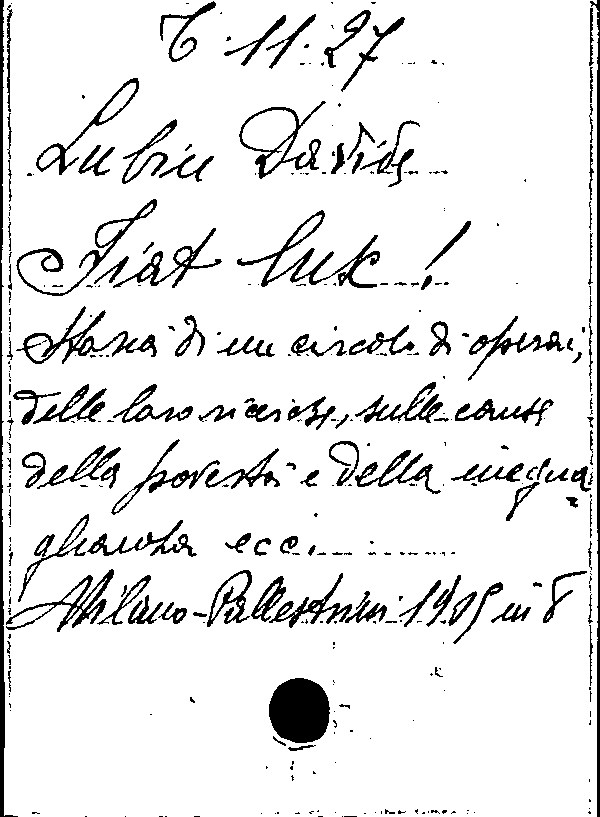 T. 11. 27
Lubin Davide
Fiat lux!
Storia di un circolo di operai,
delle loro ricerche, sulle cause
della povertà e della inegua
glianza ecc.
Milano - Pallestrini 1905 in 8